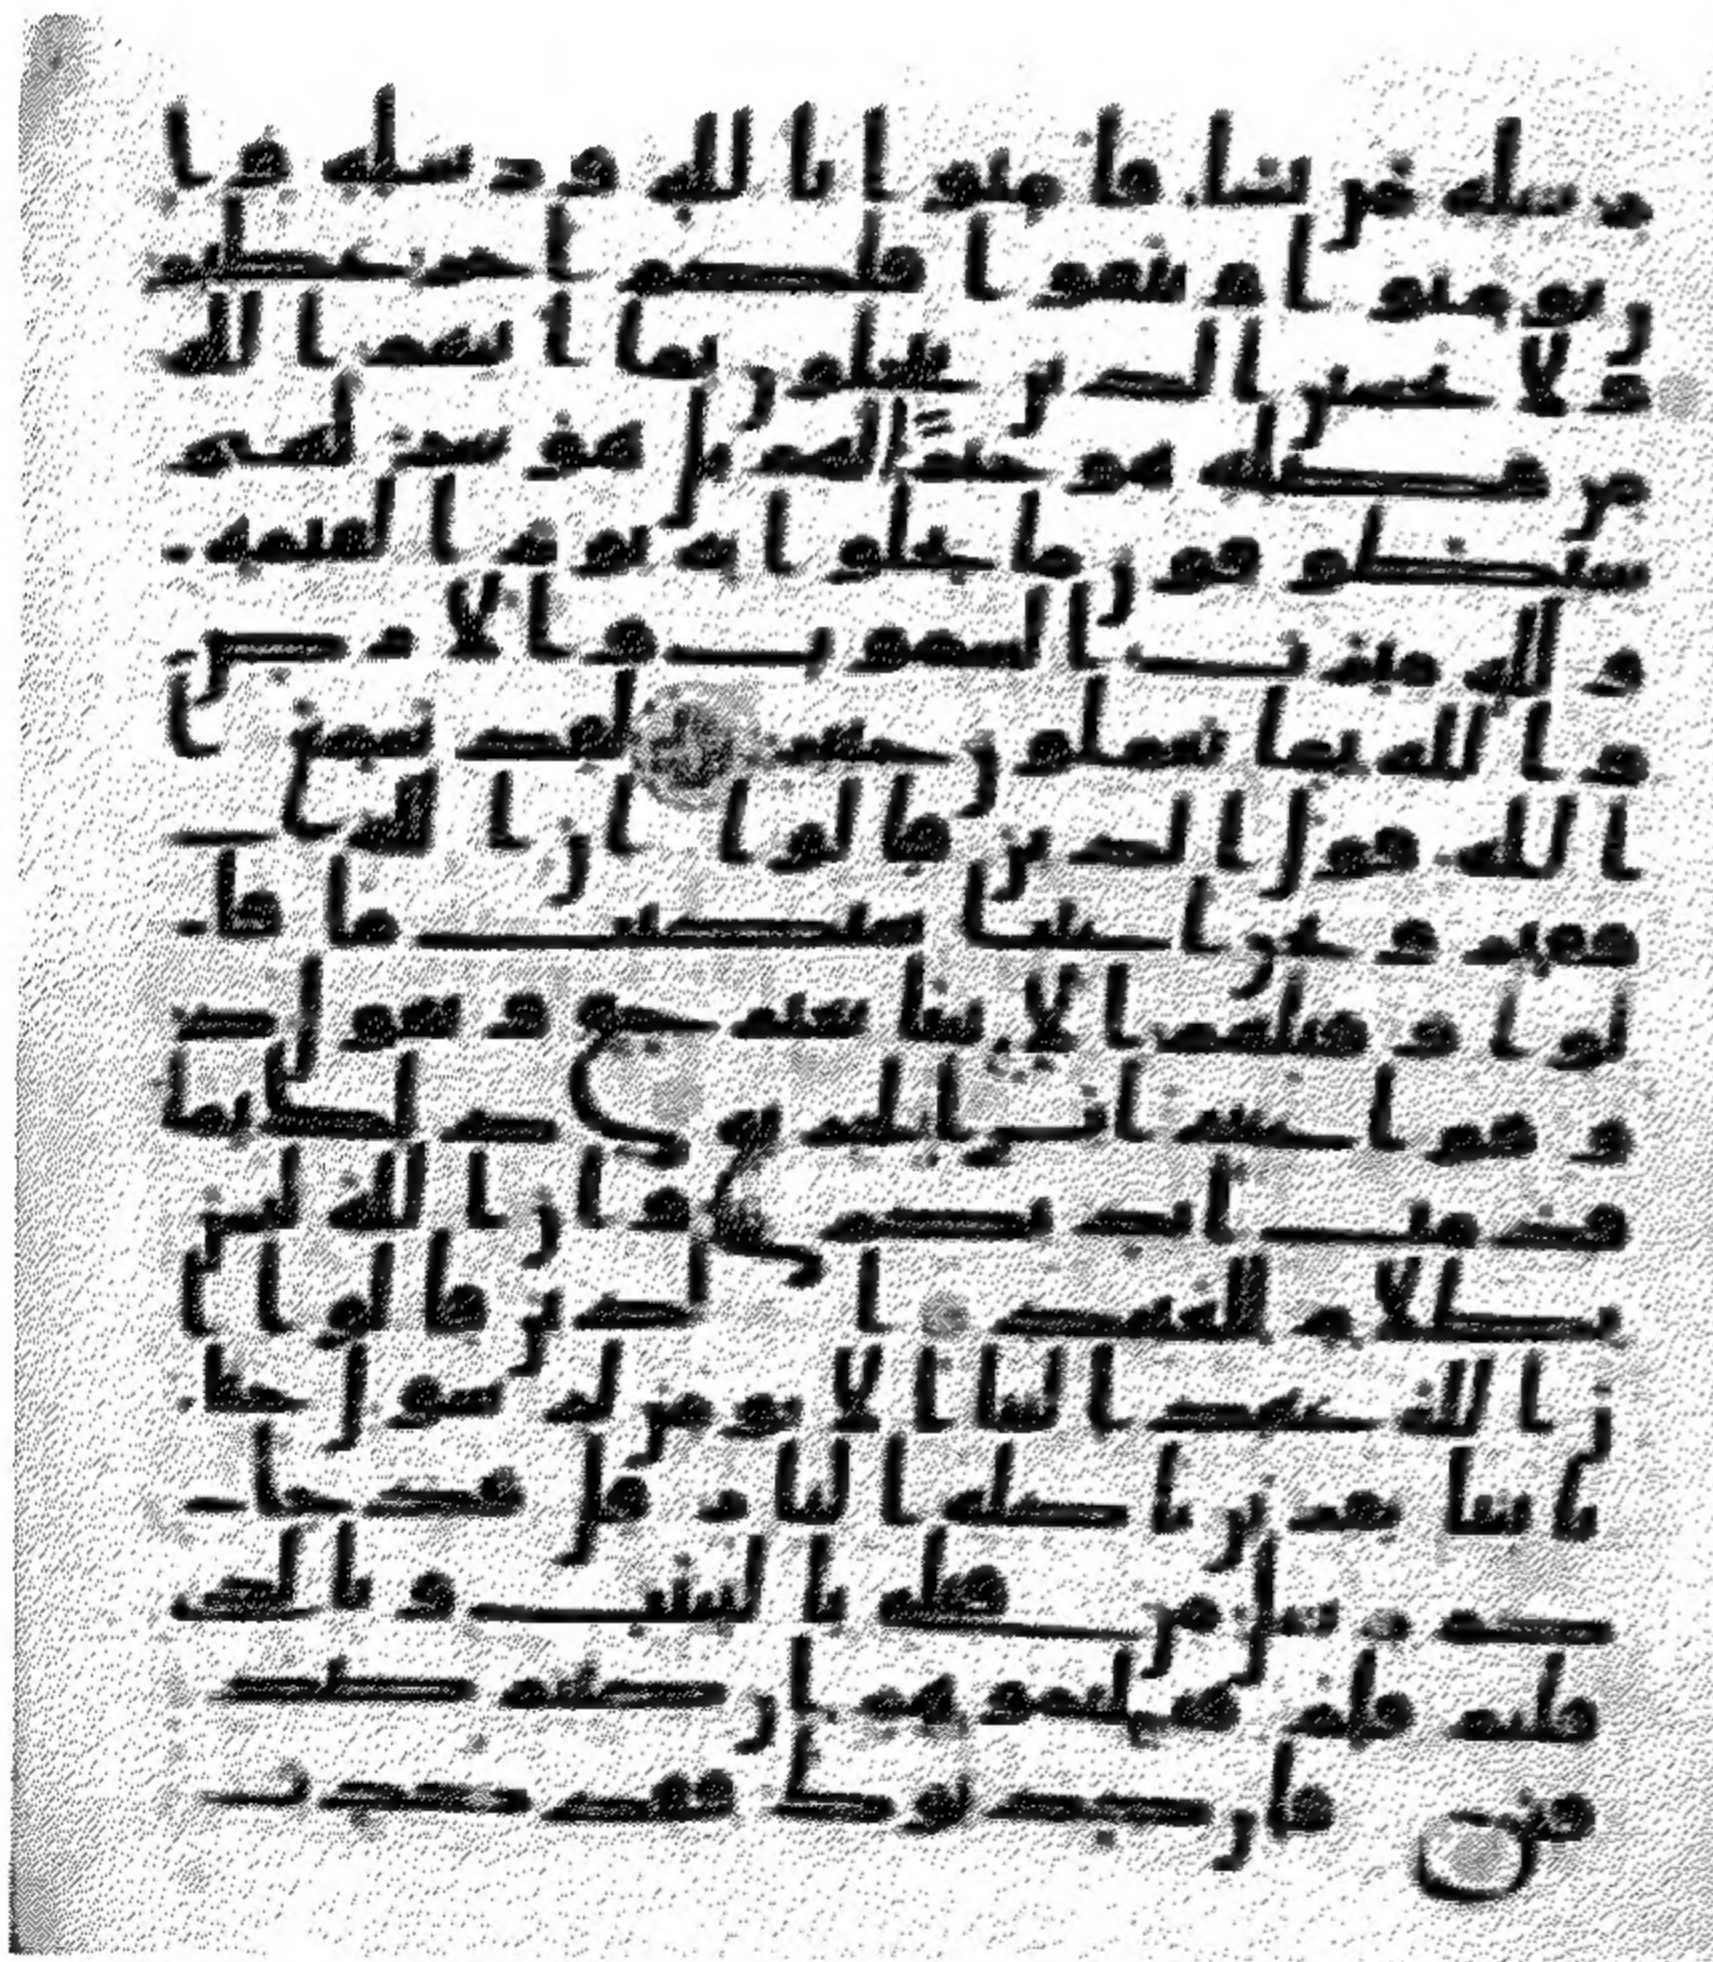 رسله من يشا فامنوا بالله ورسله وا
ن تومنوا وتتقوا فلكم اجر عظيم
ولا يحسبن الذين يبخلون بما اتهم الله
من فضله هو خيرا لهم بل هو شر لهم
سيطوقون ما بخلوا به يوم القيمة
ولله ميرث السموت والارض
والله بما تعملون خبير لقد سمع
الله قول الذين قالوا ان الله
فقير ونحن اغنيا سنكتب ما قا
لوا وقتلهم الانبيا بغير حق ونقول ذ
وقوا عذاب الحريق ذلك بما
قدمت ايديكم وان الله ليس
بظلام للعبيد الذين قالوا ا
ن الله عهد الينا الا نومن لرسول حتى
ياتينا بقربان تاكله النار قل قد جا
كم رسل من قبلي بالبينت وبالذي
قلتم فلم قتلتموهم ان كنتم صد
قين فان كذبوك فقد كذب